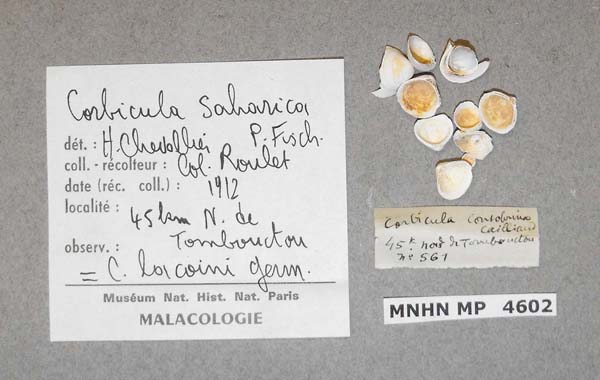 Corbicula saharica
dét. : H. Chevallier P. Fisch.
coll. - récolteur : Col. Roulet
date (réc. coll.) : 1912
localité : 45 km N. de
Tombouctou
observ. :
= C. lacoini Germ.
Muséum Nat. Hist. Nat. Paris
MALACOLOGIE
Corbicula consobrina
Cailliaud
45 k. nord de Tombouctou
n° 561
MNHN MP 4602